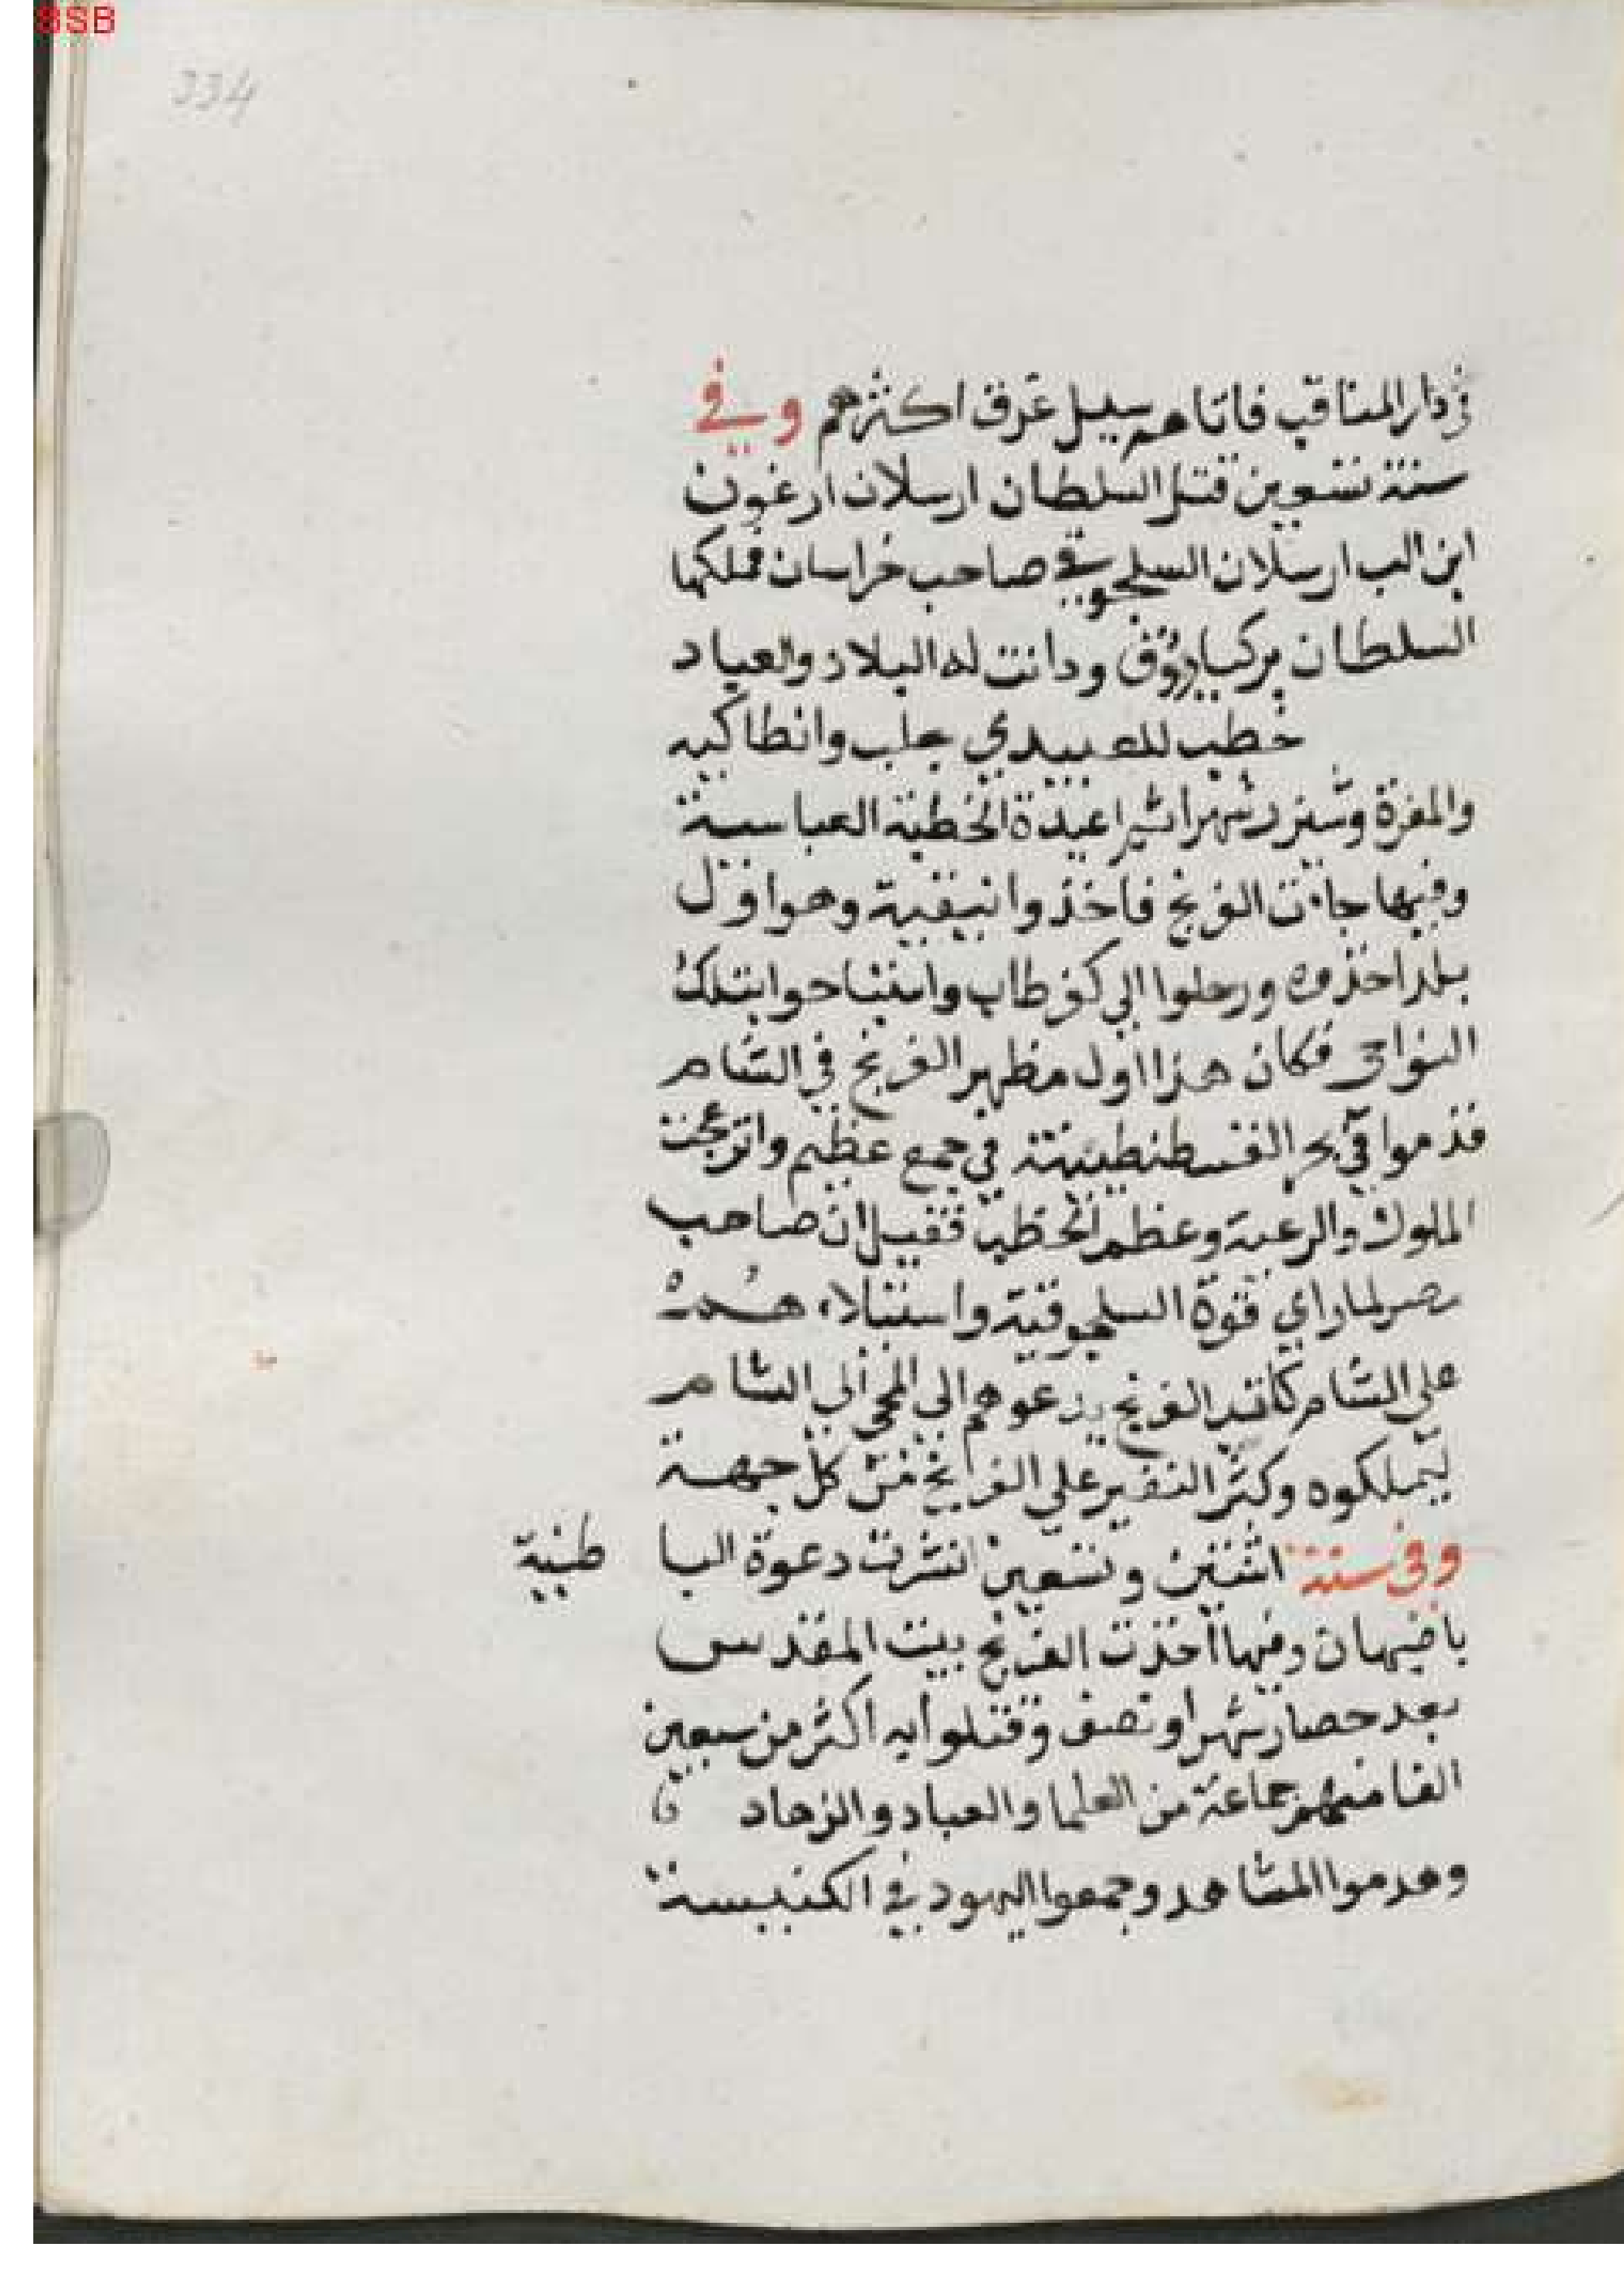 BSB
334
في دار المناقب فاتاهم سيل غرق اكثرهم وفي
سنة تسعين قتل السلطان ارسلان ارغون
ابن الب ارسلان السلجوقي صاحب خراسان فملكها
السلطان بركياروق ودانت له البلاد والعباد
خطب للعبيدي بحلب وانطاكيه
والمعرة وشيزر شهرا ثم اعيدة الخطبة العباسية
وفيها جاءت الفرنج فاخذوا نيقية وهو اول
بلد اخذوه ورحلوا الى كفرطاب واستباحوا تلك
النواحي فكان هذا اول مظهر الفرنج في الشام
قدموا في بحر القسطنطينية في جمع عظيم وانزعجت
الملوك والرعية وعظم الخطب فقيل ان صاحب
مصر لما راي قوة السلجوقية واستيلاءهم
على الشام كاتب الفرنج يدعوهم الى المجي الى الشام
ليملكوه وكثر النفير على الفرنج من كل جهة
وفي سنة اثنتين وتسعين انتشرت دعوة الباطنية
باصبهان وفيها اخذت الفرنج بيت المقدس
بعد حصار شهرا ونصف وقتلوا به اكثر من سبعين
الفا منهم جماعة من العلما والعباد والزهاد
وهدموا المشاهد وجمعوا اليهود في الكنيسة